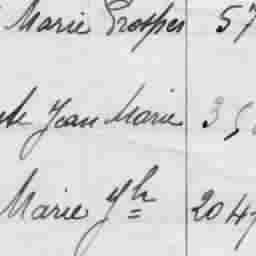 Marie Prosper 57
Jean Marie 35
Marie Yh 204